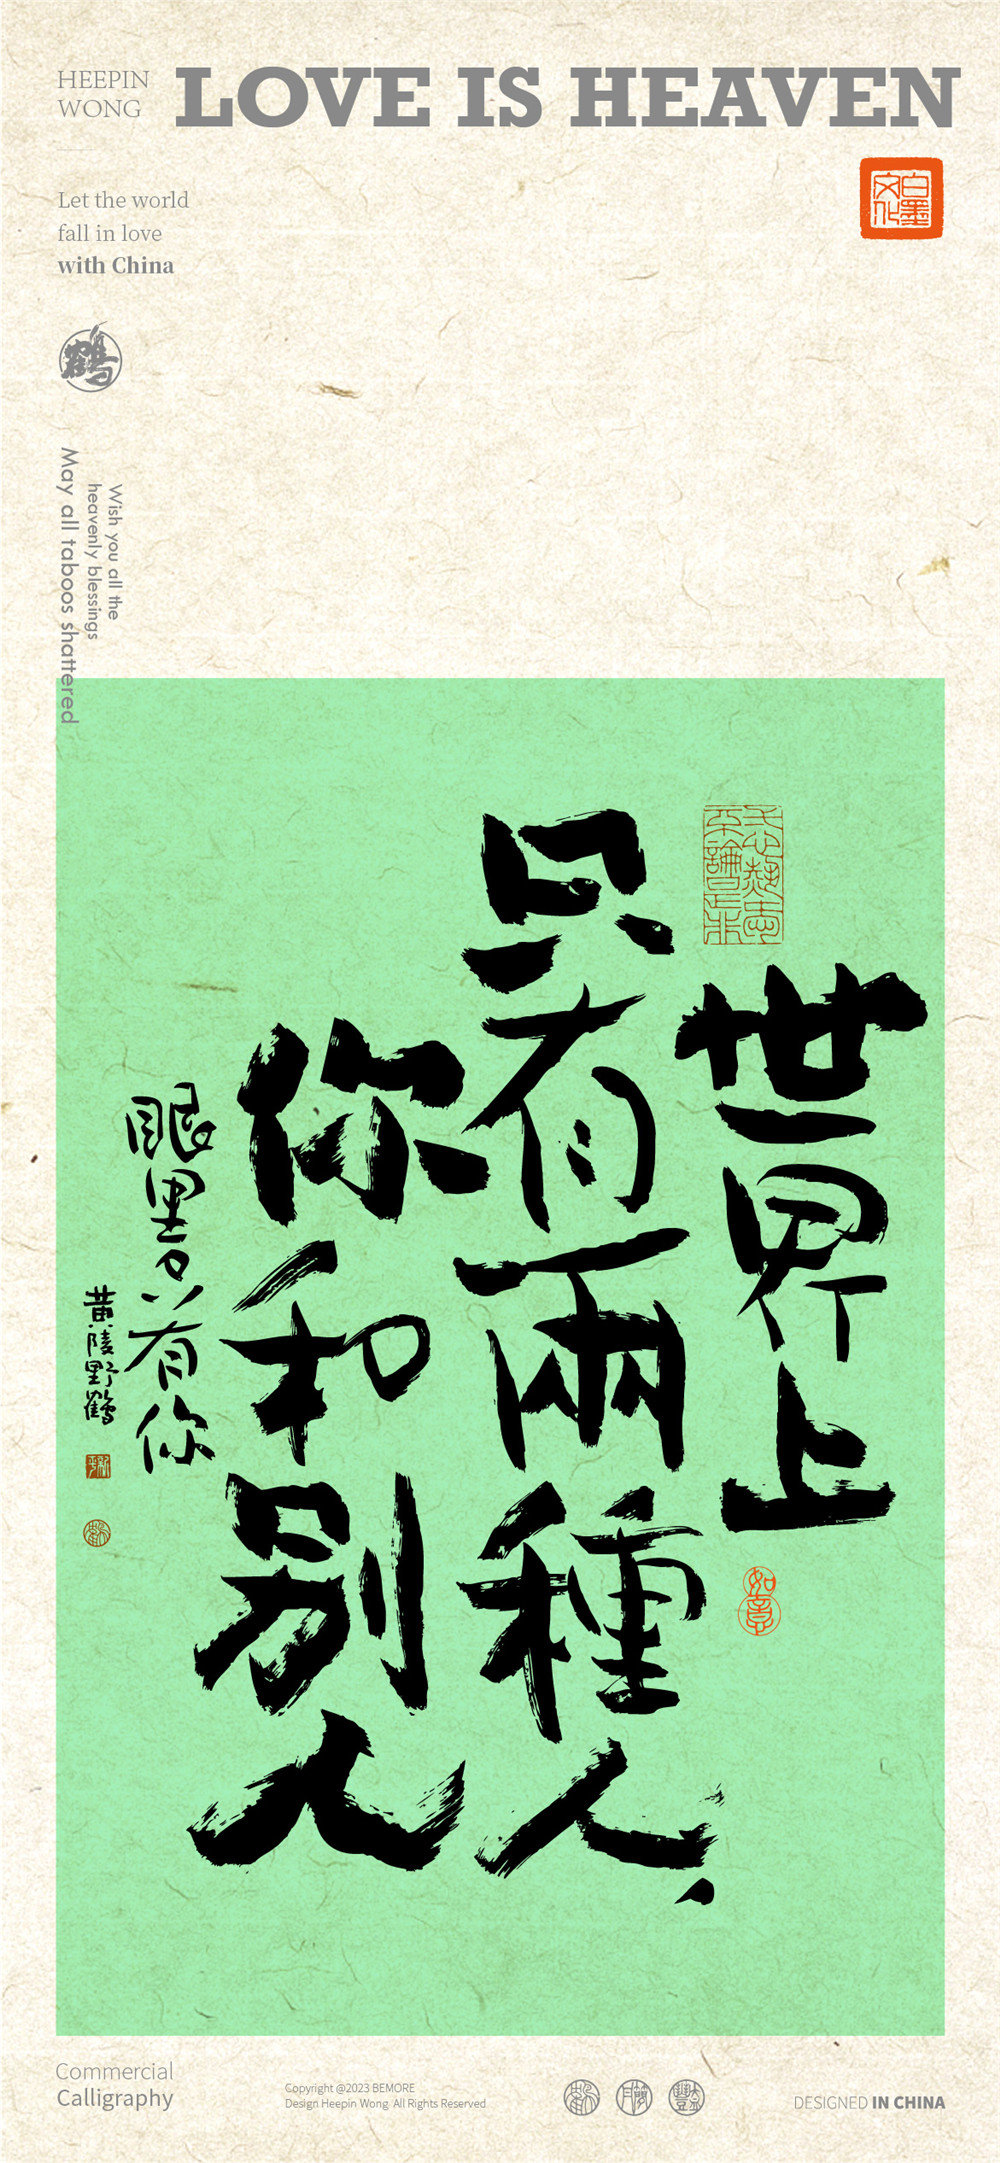 HEEPIN
WONG
LOVE IS HEAVEN
Let the world
fall in love
with China
白墨
文化
鶴
Wish you all the
heavenly blessings
May all taboos shattered
世界上
只有兩種人
你和别人
眼里只有你
黄陵野鶴
如意
Commercial
Calligraphy
Copyright @2023 BEMORE
Design Heepin Wong All Rights Reserved
DESIGNED IN CHINA